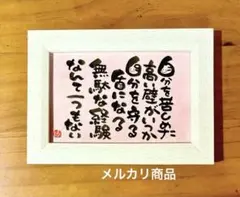 自分を苦しめた
高い壁がいつか
自分を守る
盾になる
無駄な経験
なんて一つもない
メルカリ商品